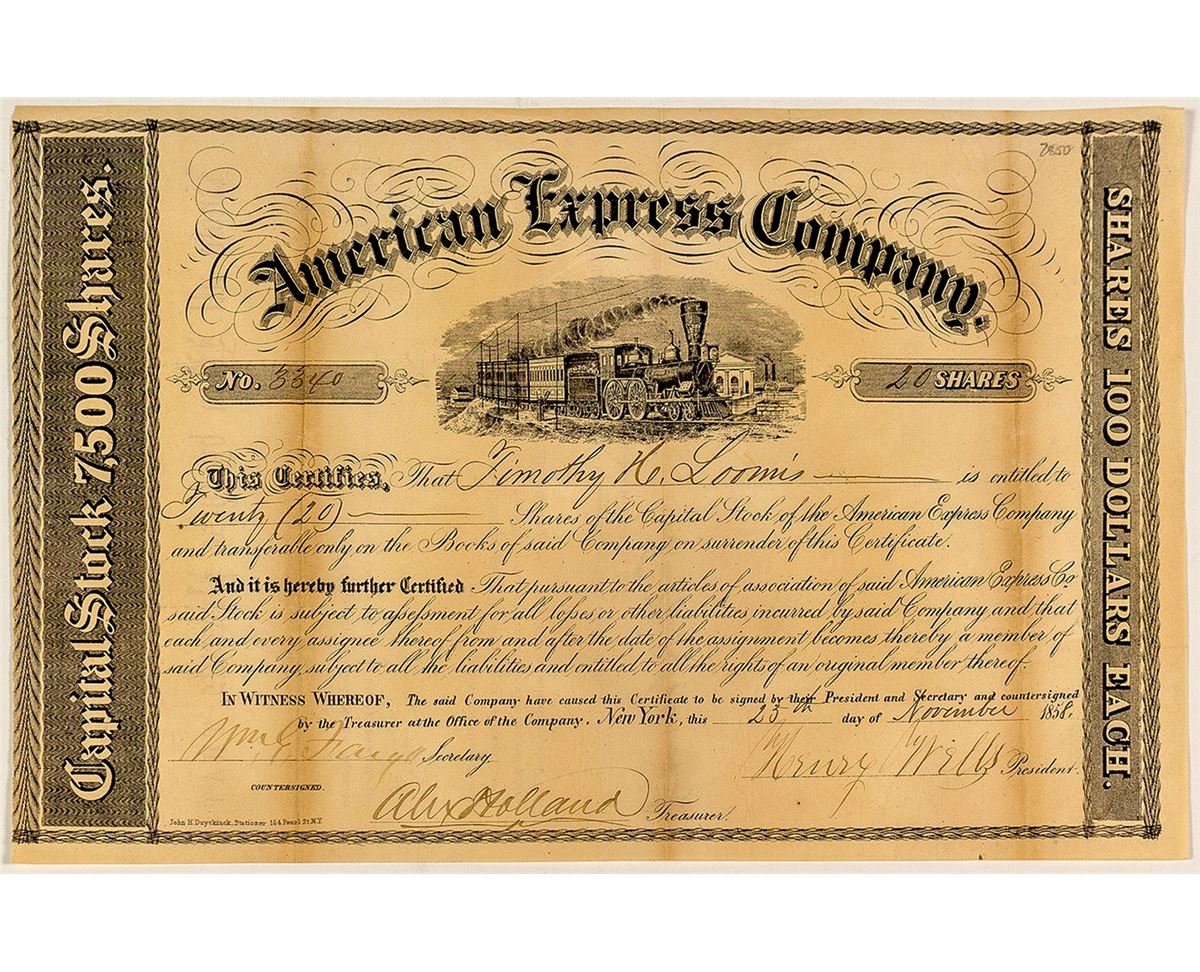 7850
American Express Company.
No. 3340
20 SHARES
Capital Stock 7,500 Shares.
SHARES 100 DOLLARS EACH.
This Certifies, That Timothy H. Loomis is entitled to
Twenty (20) Shares of the Capital Stock of the American Express Company
and transferable only on the Books of said Company on surrender of this Certificate.
And it is hereby further Certified That pursuant to the articles of association of said American Express Co
said Stock is subject to assessment for all losses or other liabilities incurred by said Company and that
each and every assignee thereof from and after the date of the assignment becomes thereby a member of
said Company, subject to all the liabilities and entitled to all the rights of an original member thereof.
IN WITNESS WHEREOF, The said Company have caused this Certificate to be signed by their President and Secretary and countersigned
by the Treasurer at the Office of the Company. NEW YORK, this 23th day of November 1858.
Wm G. Fargo Secretary
Henry Wells President.
COUNTERSIGNED.
Alex Holland Treasurer.
John H. Duyckinck, Stationer 164 Pearl St. N.Y.